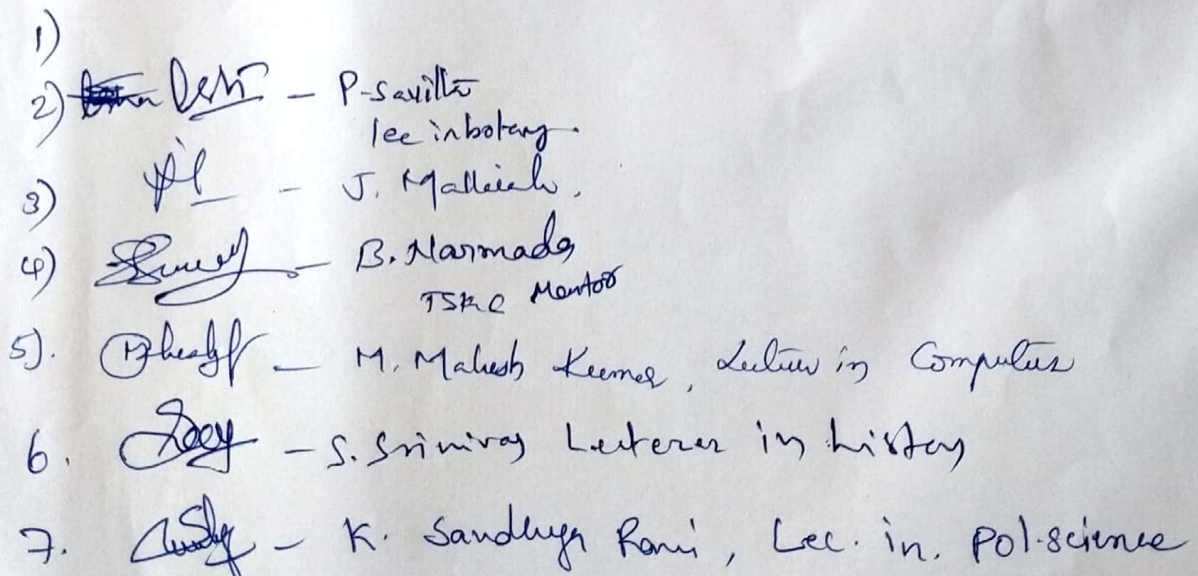 1)
2) - P. Savitta
lec in botany.
3) - J. Mallaiah,
4) - B. Narmada
TSKC Mentor
5). - M. Mahesh Kumar, Lecturer in Computers
6. - S. Srinivas Lecterer in history
7. - K. Sandhya Rani, Lec. in. pol.science